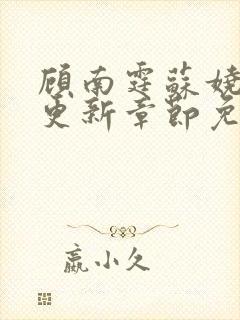 顾南霆苏娆
更新章节免
嬴小久